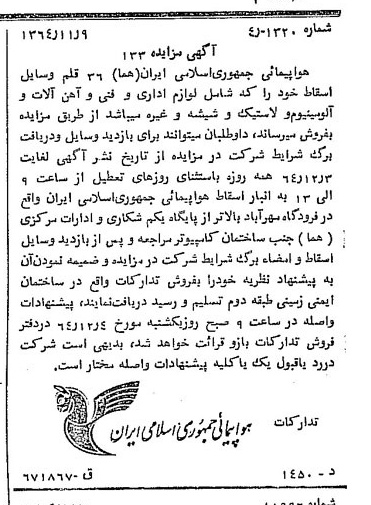 شماره ۱۳۲۰-ر۴ ۱۳۶۴/۱۱/۹
آگهی مزایده ۱۳۳
هواپیمائی جمهوری‌اسلامی ایران(هما) ۳۶ قلم وسایل
اسقاط خود را که شامل لوازم اداری و فنی و آهن آلات و
آلومینیوم‌و لاستیک و شیشه و غیره میباشد از طریق مزایده
بفروش میرساند، داوطلبان میتوانند برای بازدید وسایل ودریافت
برگ شرایط شرکت در مزایده از تاریخ نشر آگهی لغایت
۶۴/۱۲/۳ همه روزه باستثنای روزهای تعطیل از ساعت ۹
الی ۱۳ به انبار اسقاط هواپیمائی جمهوری‌اسلامی ایران واقع
در فرودگاه مهرآباد بالاتر از پایگاه یکم شکاری و ادارات مرکزی
(هما) جنب ساختمان کامپیوتر مراجعه و پس از بازدید وسایل
اسقاط و امضاء برگ شرایط شرکت در مزایده و ضمیمه نمودن‌آن
به پیشنهاد نظریه خودرا بفروش تدارکات واقع در ساختمان
ایمنی زمینی طبقه دوم تسلیم و رسید دریافت‌نمایند، پیشنهادات
واصله در ساعت ۹ صبح روزیکشنبه مورخ ۶۴/۱۲/۴ دردفتر
فروش تدارکات بازو قرائت خواهد شد، بدیهی است شرکت
دررد یاقبول یک یاکلیه پیشنهادات واصله مختار است.
تدارکات هواپیمائی جمهوری اسلامی ایران
د - ۱۴۵۰ ق-۶۷۱۸۶۷